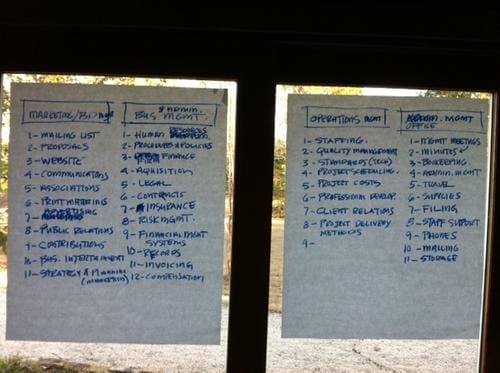 MARKETING/BD
1- MAILING LIST
2- PROPOSALS
3- WEBSITE
4- COMMUNICATIONS
5- ASSOCIATIONS
6- PRINT MATERIALS
ADVERTISING
7-
8- PUBLIC RELATIONS
9- CONTRIBUTIONS
10- BUS. ENTERTAINMENT
11- STRATEGY &
& ADMIN.
BUS MGMT.
1- HUMAN RESOURCES
2- PROCEDURES & POLICIES
3- FINANCE
4- AQUISITION
5- LEGAL
6- CONTRACTS
7- INSURANCE
8- RISK MGMT.
9- FINANCIAL MGMT
SYSTEMS
10- RECORDS
11- INVOICING
12- COMPENSATION
OPERATIONS MGMT
1- STAFFING
2- QUALITY MANAGEMENT
3- STANDARDS (TECH)
4- PROJECT SCHEDULING
5- PROJECT COSTS
6- PROFESSIONAL DEVELOP.
7- CLIENT RELATIONS
8- PROJECT DELIVERY
METHODS
9-
MGMT
OFFICE
1- MGMT MEETINGS
2- MINUTES
3- BOOKEEPING
4- ADMIN. MGMT
5- TRAVEL
6- SUPPLIES
7- FILING
8- STAFF SUPPORT
9- PHONES
10- MAILING
11- STORAGE